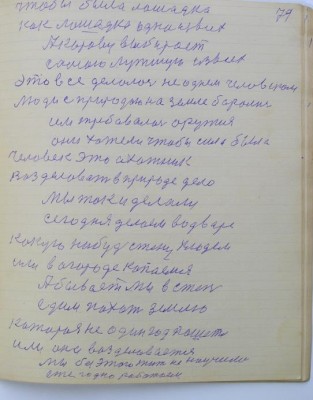 чтобы была лошадка
79
как лошадка одна из них
А корову выбирает
самою лутшую из всех
Это все делолось не одним человеком
Люди с природой на земле боролись
им требовалось оружия
они хотели чтобы сила была
Человек это охотник
Возделовать в природе дело
Мы так и делали
сегодня делаем во дворе
Какую нибудь стену кладем
или в огороде капаемся
А бывает мы в степь
едим пахат землю
Которая не один год пашется
или она возделовается
Мы бы этого так не научили
где годно работаем